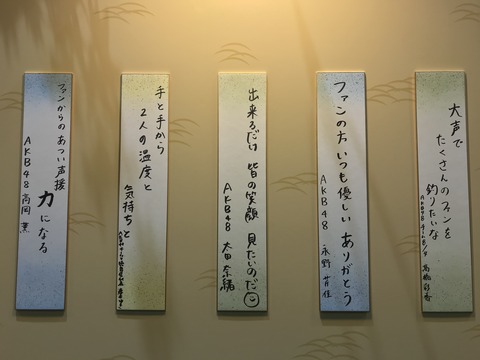 大声で
たくさんのファンを
釣りたいな
ファンの方 いつも優しい ありがとう
AKB48 永野 芹佳
出来るだけ 皆の笑顔 見たいのだ
AKB48 太田 奈緒
手と手から
2人の温度と
気持ちと
ファンからのあつい声援 力になる
AKB48 高岡 薫